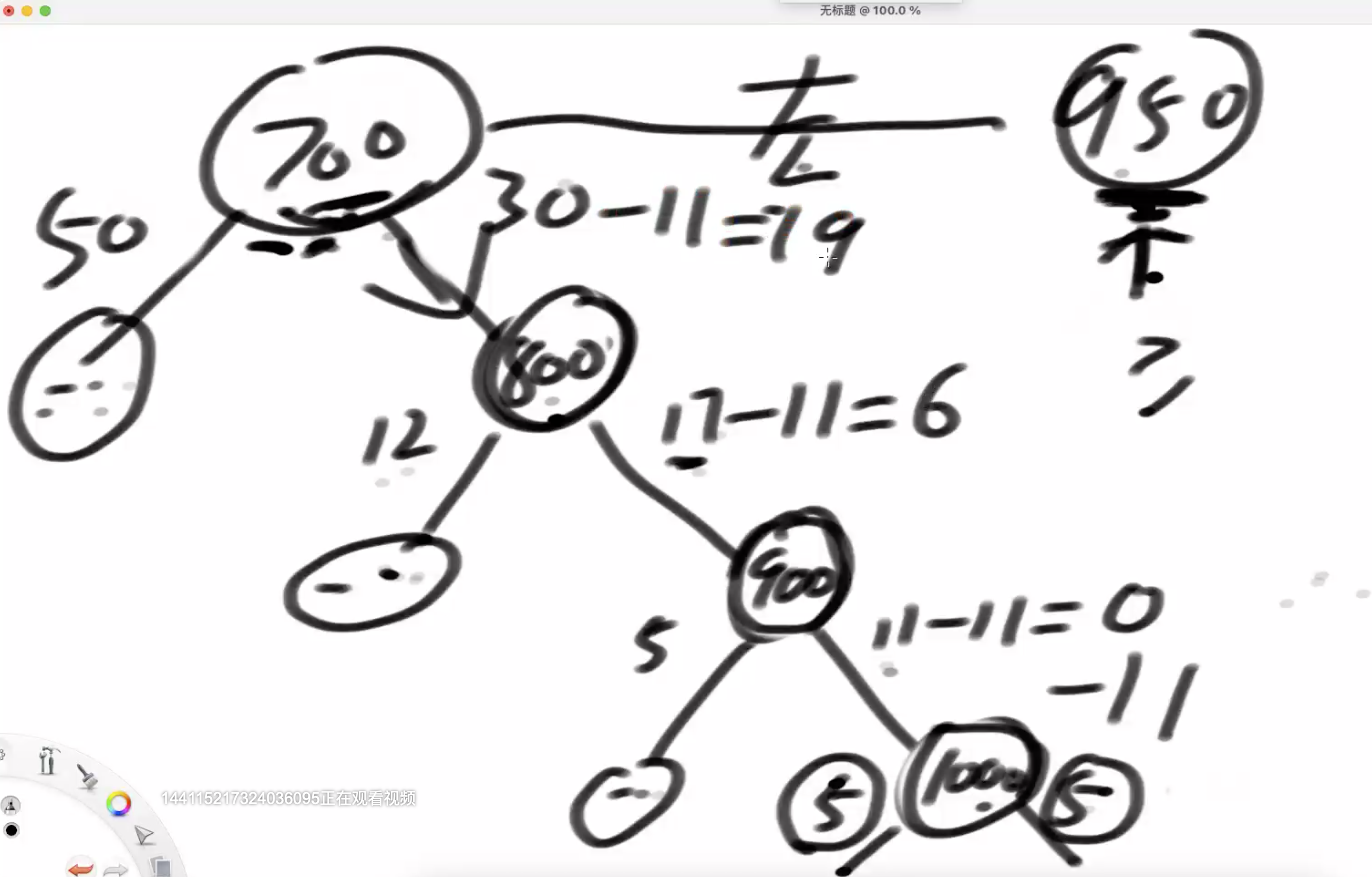 无标题 @ 100.0 %
700
950
50
30-11=19
800
12
17-11=6
900
5
11-11=0
-11
5
1000
5
144115217324036095正在观看视频